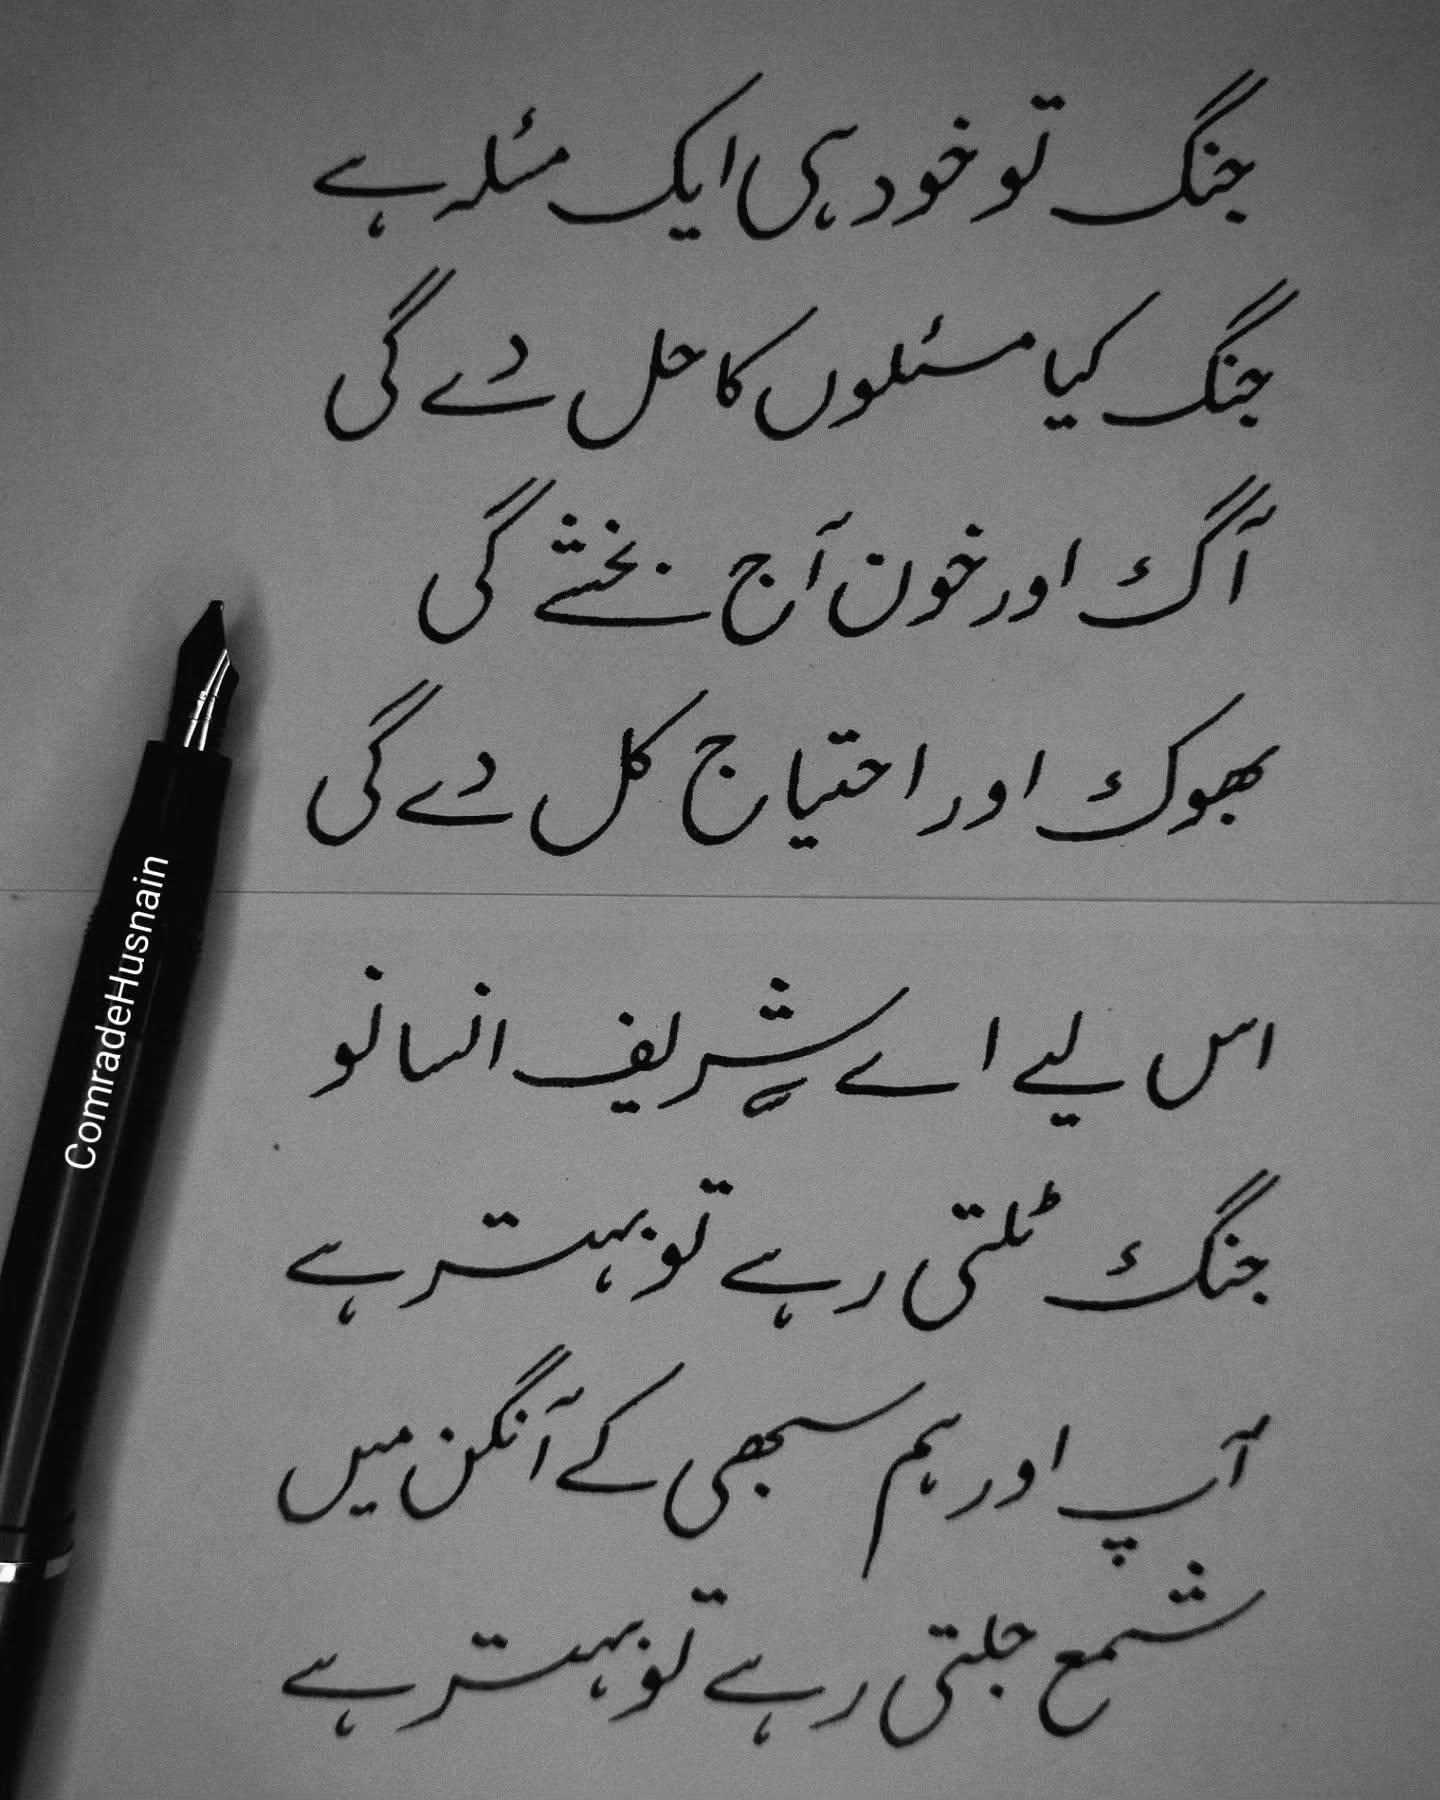 جنگ تو خود ہی ایک مسئلہ ہے
جنگ کیا مسئلوں کا حل دے گی
آگ اور خون آج بخشے گی
بھوک اور احتیاج کل دے گی
اس لیے اے شریف انسانو
جنگ ٹلتی رہے تو بہتر ہے
آپ اور ہم سبھی کے آنگن میں
شمع جلتی رہے تو بہتر ہے
ComradeHusnain